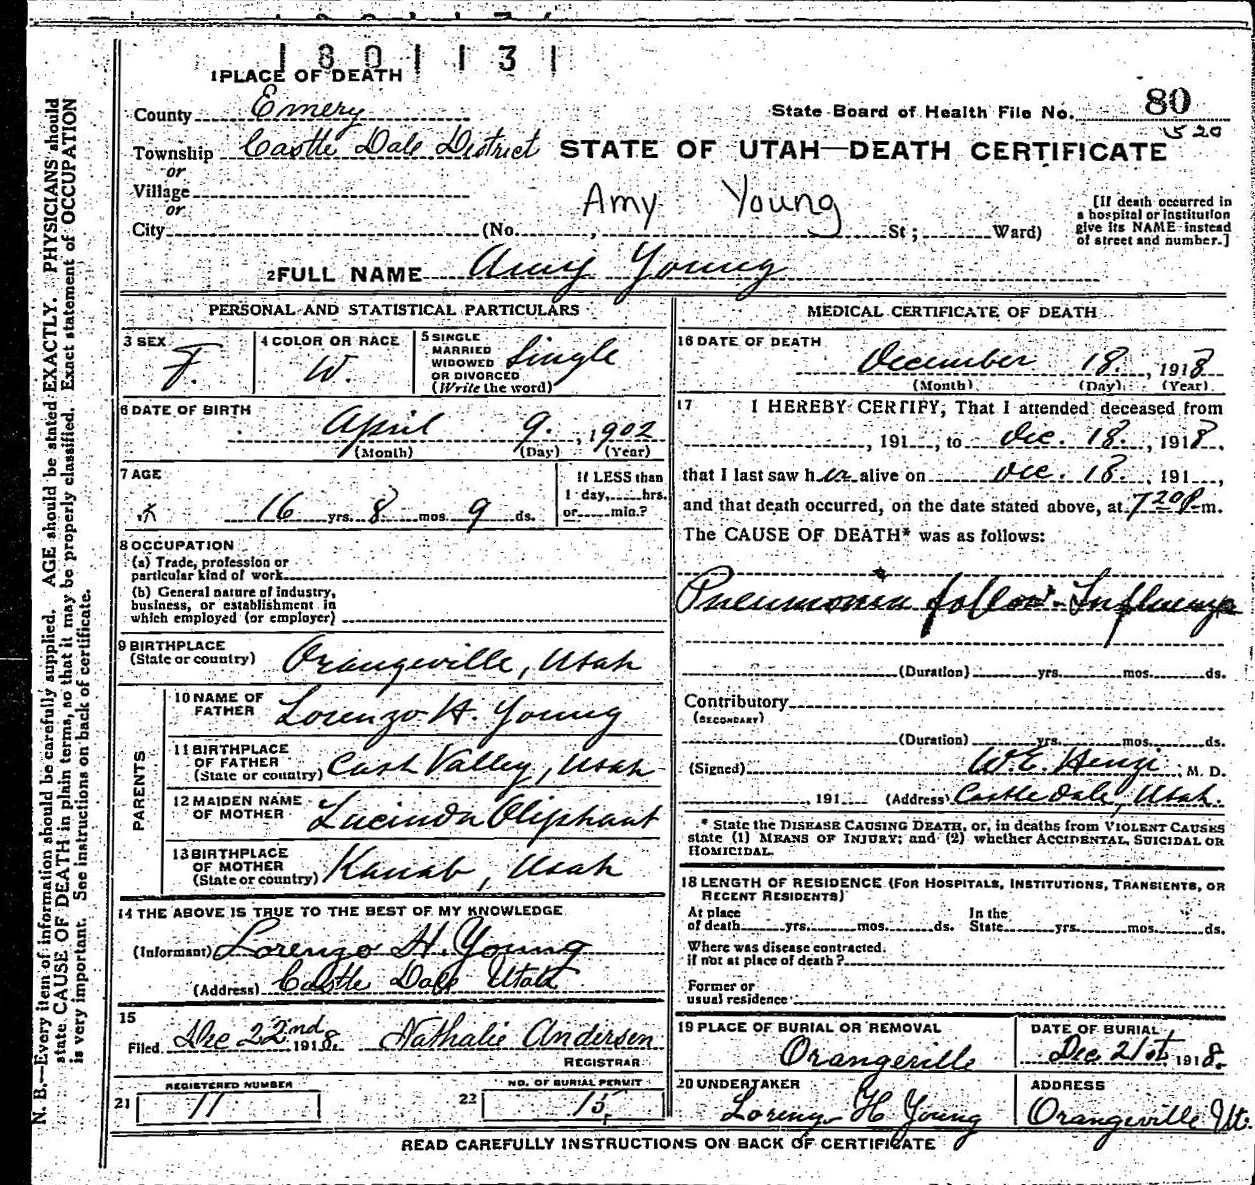 1801131
1 PLACE OF DEATH
County Emery
State Board of Health File No. 80
Township Castle Dale District
STATE OF UTAH—DEATH CERTIFICATE
or
Village
or
Amy Young
City (No. , St; Ward)
[If death occurred in a hospital or institution give its NAME instead of street and number.]
2 FULL NAME Amy Young
PERSONAL AND STATISTICAL PARTICULARS
3 SEX F.
4 COLOR OR RACE W.
5 SINGLE MARRIED WIDOWED OR DIVORCED (Write the word) Single
6 DATE OF BIRTH
April 9. , 1902
(Month) (Day) (Year)
7 AGE
16 yrs. 8 mos. 9 ds.
If LESS than 1 day, hrs. or min.?
8 OCCUPATION
(a) Trade, profession or particular kind of work
(b) General nature of industry, business, or establishment in which employed (or employer)
9 BIRTHPLACE (State or country) Orangeville, Utah
PARENTS
10 NAME OF FATHER Lorenzo H. Young
11 BIRTHPLACE OF FATHER (State or country) Cash Valley, Utah
12 MAIDEN NAME OF MOTHER Lucinda Oliphant
13 BIRTHPLACE OF MOTHER (State or country) Kanab, Utah
14 THE ABOVE IS TRUE TO THE BEST OF MY KNOWLEDGE
(Informant) Lorenzo H. Young
(Address) Castle Dale Utah
15
Filed Dec 22nd 1918. Nathalie Andersen
REGISTRAR
REGISTERED NUMBER
21 11
NO. OF BURIAL PERMIT
22 15
MEDICAL CERTIFICATE OF DEATH
16 DATE OF DEATH
December 18. , 1918
(Month) (Day) (Year)
17 I HEREBY CERTIFY, That I attended deceased from
, 191 , to Dec. 18. , 1918,
that I last saw her alive on Dec. 18. , 191 ,
and that death occurred, on the date stated above, at 7 20 P. m.
The CAUSE OF DEATH* was as follows:
Pneumonia follow. Influenza
(Duration) yrs. mos. ds.
Contributory
(SECONDARY)
(Duration) yrs. mos. ds.
(Signed) W.E. Henzi M. D.
, 191 (Address) Castledale, Utah.
* State the DISEASE CAUSING DEATH, or, in deaths from VIOLENT CAUSES
state (1) MEANS OF INJURY; and (2) whether ACCIDENTAL, SUICIDAL OR
HOMICIDAL.
18 LENGTH OF RESIDENCE (FOR HOSPITALS, INSTITUTIONS, TRANSIENTS, OR
RECENT RESIDENTS)
At place of death yrs. mos. ds. In the State yrs. mos. ds.
Where was disease contracted.
if not at place of death?
Former or
usual residence
19 PLACE OF BURIAL OR REMOVAL
Orangeville
DATE OF BURIAL
Dec. 21st, 1918.
20 UNDERTAKER
Lorenzo H Young
ADDRESS
Orangeville Ut.
READ CAREFULLY INSTRUCTIONS ON BACK OF CERTIFICATE
N. B.—Every item of information should be carefully supplied. AGE should be stated EXACTLY. PHYSICIANS should
state CAUSE OF DEATH in plain terms, so that it may be properly classified. Exact statement of OCCUPATION
is very important. See instructions on back of certificate.